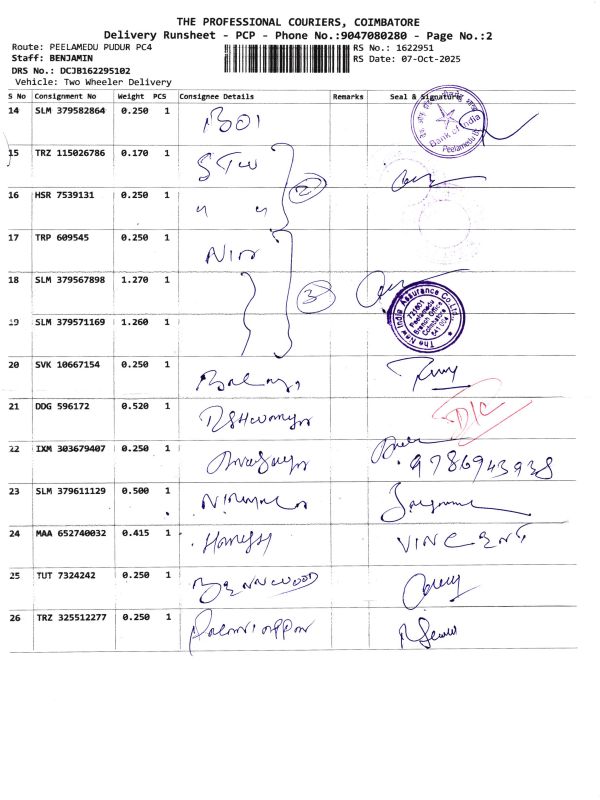 THE PROFESSIONAL COURIERS, COIMBATORE
Delivery Runsheet - PCP - Phone No.:9047080280 - Page No.:2
Route: PEELAMEDU PUDUR PC4 RS No.: 1622951
Staff: BENJAMIN RS Date: 07-Oct-2025
DRS No.: DCJB162295102
Vehicle: Two Wheeler Delivery
S No Consignment No Weight PCS Consignee Details Remarks Seal & Signature
14 SLM 379582864 0.250 1 BOI Bank of India Peelamedu
15 TRZ 115026786 0.170 1
16 HSR 7539131 0.250 1 " " 2
17 TRP 609545 0.250 1
18 SLM 379567898 1.270 1 3
The New India Assurance Co Ltd. 721601 Peelamedu Branch Office Coimbatore 641 004
19 SLM 379571169 1.260 1
20 SVK 10667154 0.250 1
21 DDG 596172 0.520 1 D/C
22 IXM 303679407 0.250 1 9786943938
23 SLM 379611129 0.500 1
24 MAA 652740032 0.415 1 VINCENT
25 TUT 7324242 0.250 1 BENNWOOD
26 TRZ 325512277 0.250 1